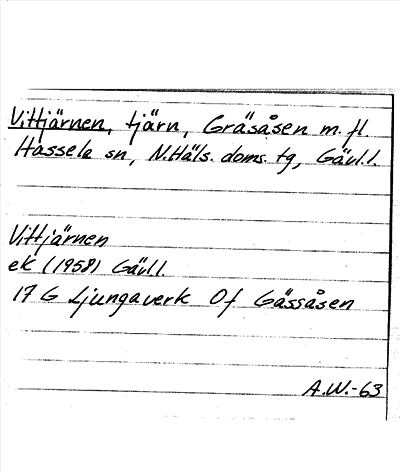 Vittjärnen, tjärn, Gräsåsen m.fl.
Hassela sn, N.Häls. doms. tg, Gävl.l.
Vittjärnen
ek (1958) Gävl.l
17 G Ljungaverk 0f Gässåsen
A.W.-63